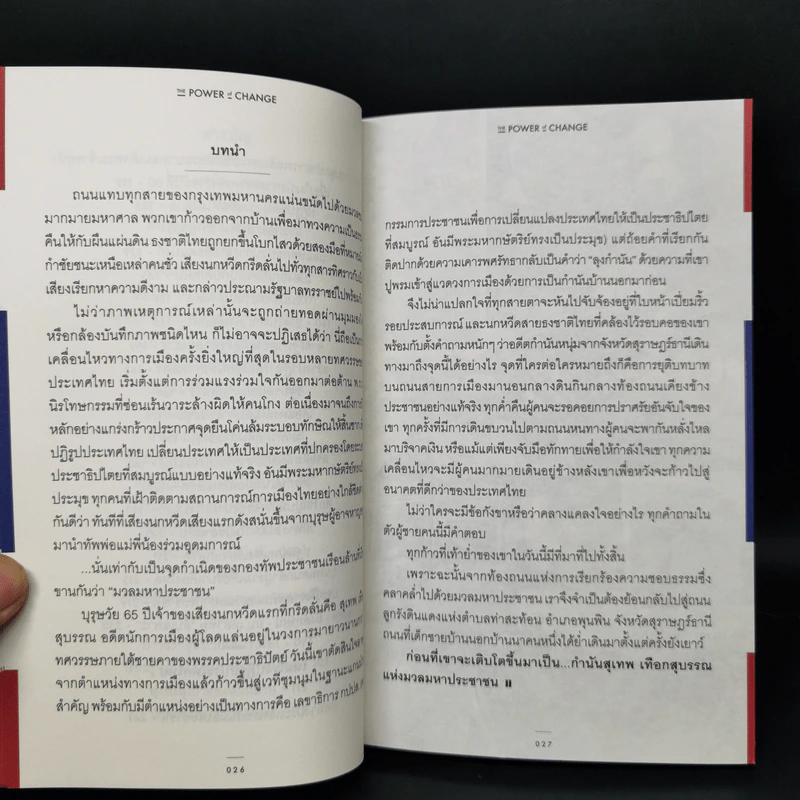 THE POWER of CHANGE
บทนำ
ถนนแทบทุกสายของกรุงเทพมหานครแน่นขนัดไปด้วยมวลชน
มากมายมหาศาล พวกเขาก้าวออกจากบ้านเพื่อมาทวงความเป็นธรรม
คืนให้กับผืนแผ่นดิน ธงชาติไทยถูกยกขึ้นโบกไสวด้วยสองมือที่หมายมั่น
กำชัยชนะเหนือเหล่าคนชั่ว เสียงนกหวีดกรีดลั่นไปทั่วทุกสารทิศราวกับเป็น
เสียงเรียกหาความดีงาม และกล่าวประณามรัฐบาลทรราชย์ไปพร้อมกัน
ไม่ว่าภาพเหตุการณ์เหล่านั้นจะถูกถ่ายทอดผ่านมุมมอง
หรือกล้องบันทึกภาพชนิดไหน ก็ไม่อาจจะปฏิเสธได้ว่า นี่ถือเป็นการ
เคลื่อนไหวทางการเมืองครั้งยิ่งใหญ่ที่สุดในรอบหลายทศวรรษของ
ประเทศไทย เริ่มตั้งแต่การร่วมแรงร่วมใจกันออกมาต่อต้าน พ.ร.บ.
นิรโทษกรรมที่ซ่อนเร้นวาระล้างผิดให้คนโกง ต่อเนื่องมาจนถึงการ
หลักอย่างแกร่งกร้าวประกาศจุดยืนโค่นล้มระบอบทักษิณให้สิ้นซาก
ปฏิรูปประเทศไทย เปลี่ยนประเทศให้เป็นประเทศที่ปกครองโดยระบอบ
ประชาธิปไตยที่สมบูรณ์แบบอย่างแท้จริง อันมีพระมหากษัตริย์ทรงเป็น
ประมุข ทุกคนที่เฝ้าติดตามสถานการณ์การเมืองไทยอย่างใกล้ชิด
กันดีว่า ทันทีที่เสียงนกหวีดเสียงแรกดังสนั่นขึ้นจากบุรุษผู้อาจหาญ
มานำทัพพ่อแม่พี่น้องร่วมอุดมการณ์
...นั่นเท่ากับเป็นจุดกำเนิดของกองทัพประชาชนเรือนล้านที่
ขานกันว่า “มวลมหาประชาชน”
บุรุษวัย 65 ปีเจ้าของเสียงนกหวีดแรกที่กรีดลั่นคือ สุเทพ เทือก
สุบรรณ อดีตนักการเมืองผู้โลดแล่นอยู่ในวงการมายาวนานกว่า
ทศวรรษภายใต้ชายคาของพรรคประชาธิปัตย์ วันนี้เขาตัดสินใจ
จากตำแหน่งทางการเมืองแล้วก้าวขึ้นสู่เวทีชุมนุมในฐานะแกนนำ
สำคัญ พร้อมกับมีตำแหน่งอย่างเป็นทางการคือ เลขาธิการ กปปส.
026
THE POWER of CHANGE
กรรมการประชาชนเพื่อการเปลี่ยนแปลงประเทศไทยให้เป็นประชาธิปไตย
ที่สมบูรณ์ อันมีพระมหากษัตริย์ทรงเป็นประมุข) แต่ถ้อยคำที่เรียกกัน
ติดปากด้วยความเคารพศรัทธากลับเป็นคำว่า “ลุงกำนัน” ด้วยความที่เขา
ปูพรมเข้าสู่แวดวงการเมืองด้วยการเป็นกำนันบ้านนอกมาก่อน
จึงไม่น่าแปลกใจที่ทุกสายตาจะหันไปจับจ้องอยู่ที่ใบหน้าเปี่ยมริ้ว
รอยประสบการณ์ และนกหวีดสายธงชาติไทยที่คล้องไว้รอบคอของเขา
พร้อมกับตั้งคำถามหนักๆ ว่าอดีตกำนันหนุ่มจากจังหวัดสุราษฎร์ธานีเดิน
ทางมาถึงจุดนี้ได้อย่างไร จุดที่ใครต่อใครหมายถึงก็คือการยุติบทบาท
บนถนนสายการเมืองมานอนกลางดินกินกลางท้องถนนเคียงข้าง
ประชาชนอย่างแท้จริง ทุกค่ำคืนผู้คนจะรอคอยการปราศรัยอันจับใจของ
เขา ทุกครั้งที่มีการเดินขบวนไปตามถนนหนทางผู้คนจะพากันหลั่งไหล
มาบริจาคเงิน หรือแม้แต่เพียงจับมือทักทายเพื่อให้กำลังใจเขา ทุกความ
เคลื่อนไหวจะมีผู้คนมากมายเดินอยู่ข้างหลังเขาเพื่อหวังจะก้าวไปสู่
อนาคตที่ดีกว่าของประเทศไทย
ไม่ว่าใครจะมีข้อกังขาหรือว่าคลางแคลงใจอย่างไร ทุกคำถามใน
ตัวผู้ชายคนนี้มีคำตอบ
ทุกก้าวที่เท้าย่ำของเขาในวันนี้มีที่มาที่ไปทั้งสิ้น
เพราะฉะนั้นจากท้องถนนแห่งการเรียกร้องความชอบธรรมซึ่ง
คลาคล่ำไปด้วยมวลมหาประชาชน เราจึงจำเป็นต้องย้อนกลับไปสู่ถนน
ลูกรังดินแดงแห่งตำบลท่าสะท้อน อำเภอพุนพิน จังหวัดสุราษฎร์ธานี
ถนนที่เด็กชายบ้านนอกบ้านนาคนหนึ่งได้ย่ำเดินมาตั้งแต่ครั้งยังเยาว์
ก่อนที่เขาจะเติบโตขึ้นมาเป็น...กำนันสุเทพ เทือกสุบรรณ
แห่งมวลมหาประชาชน
027